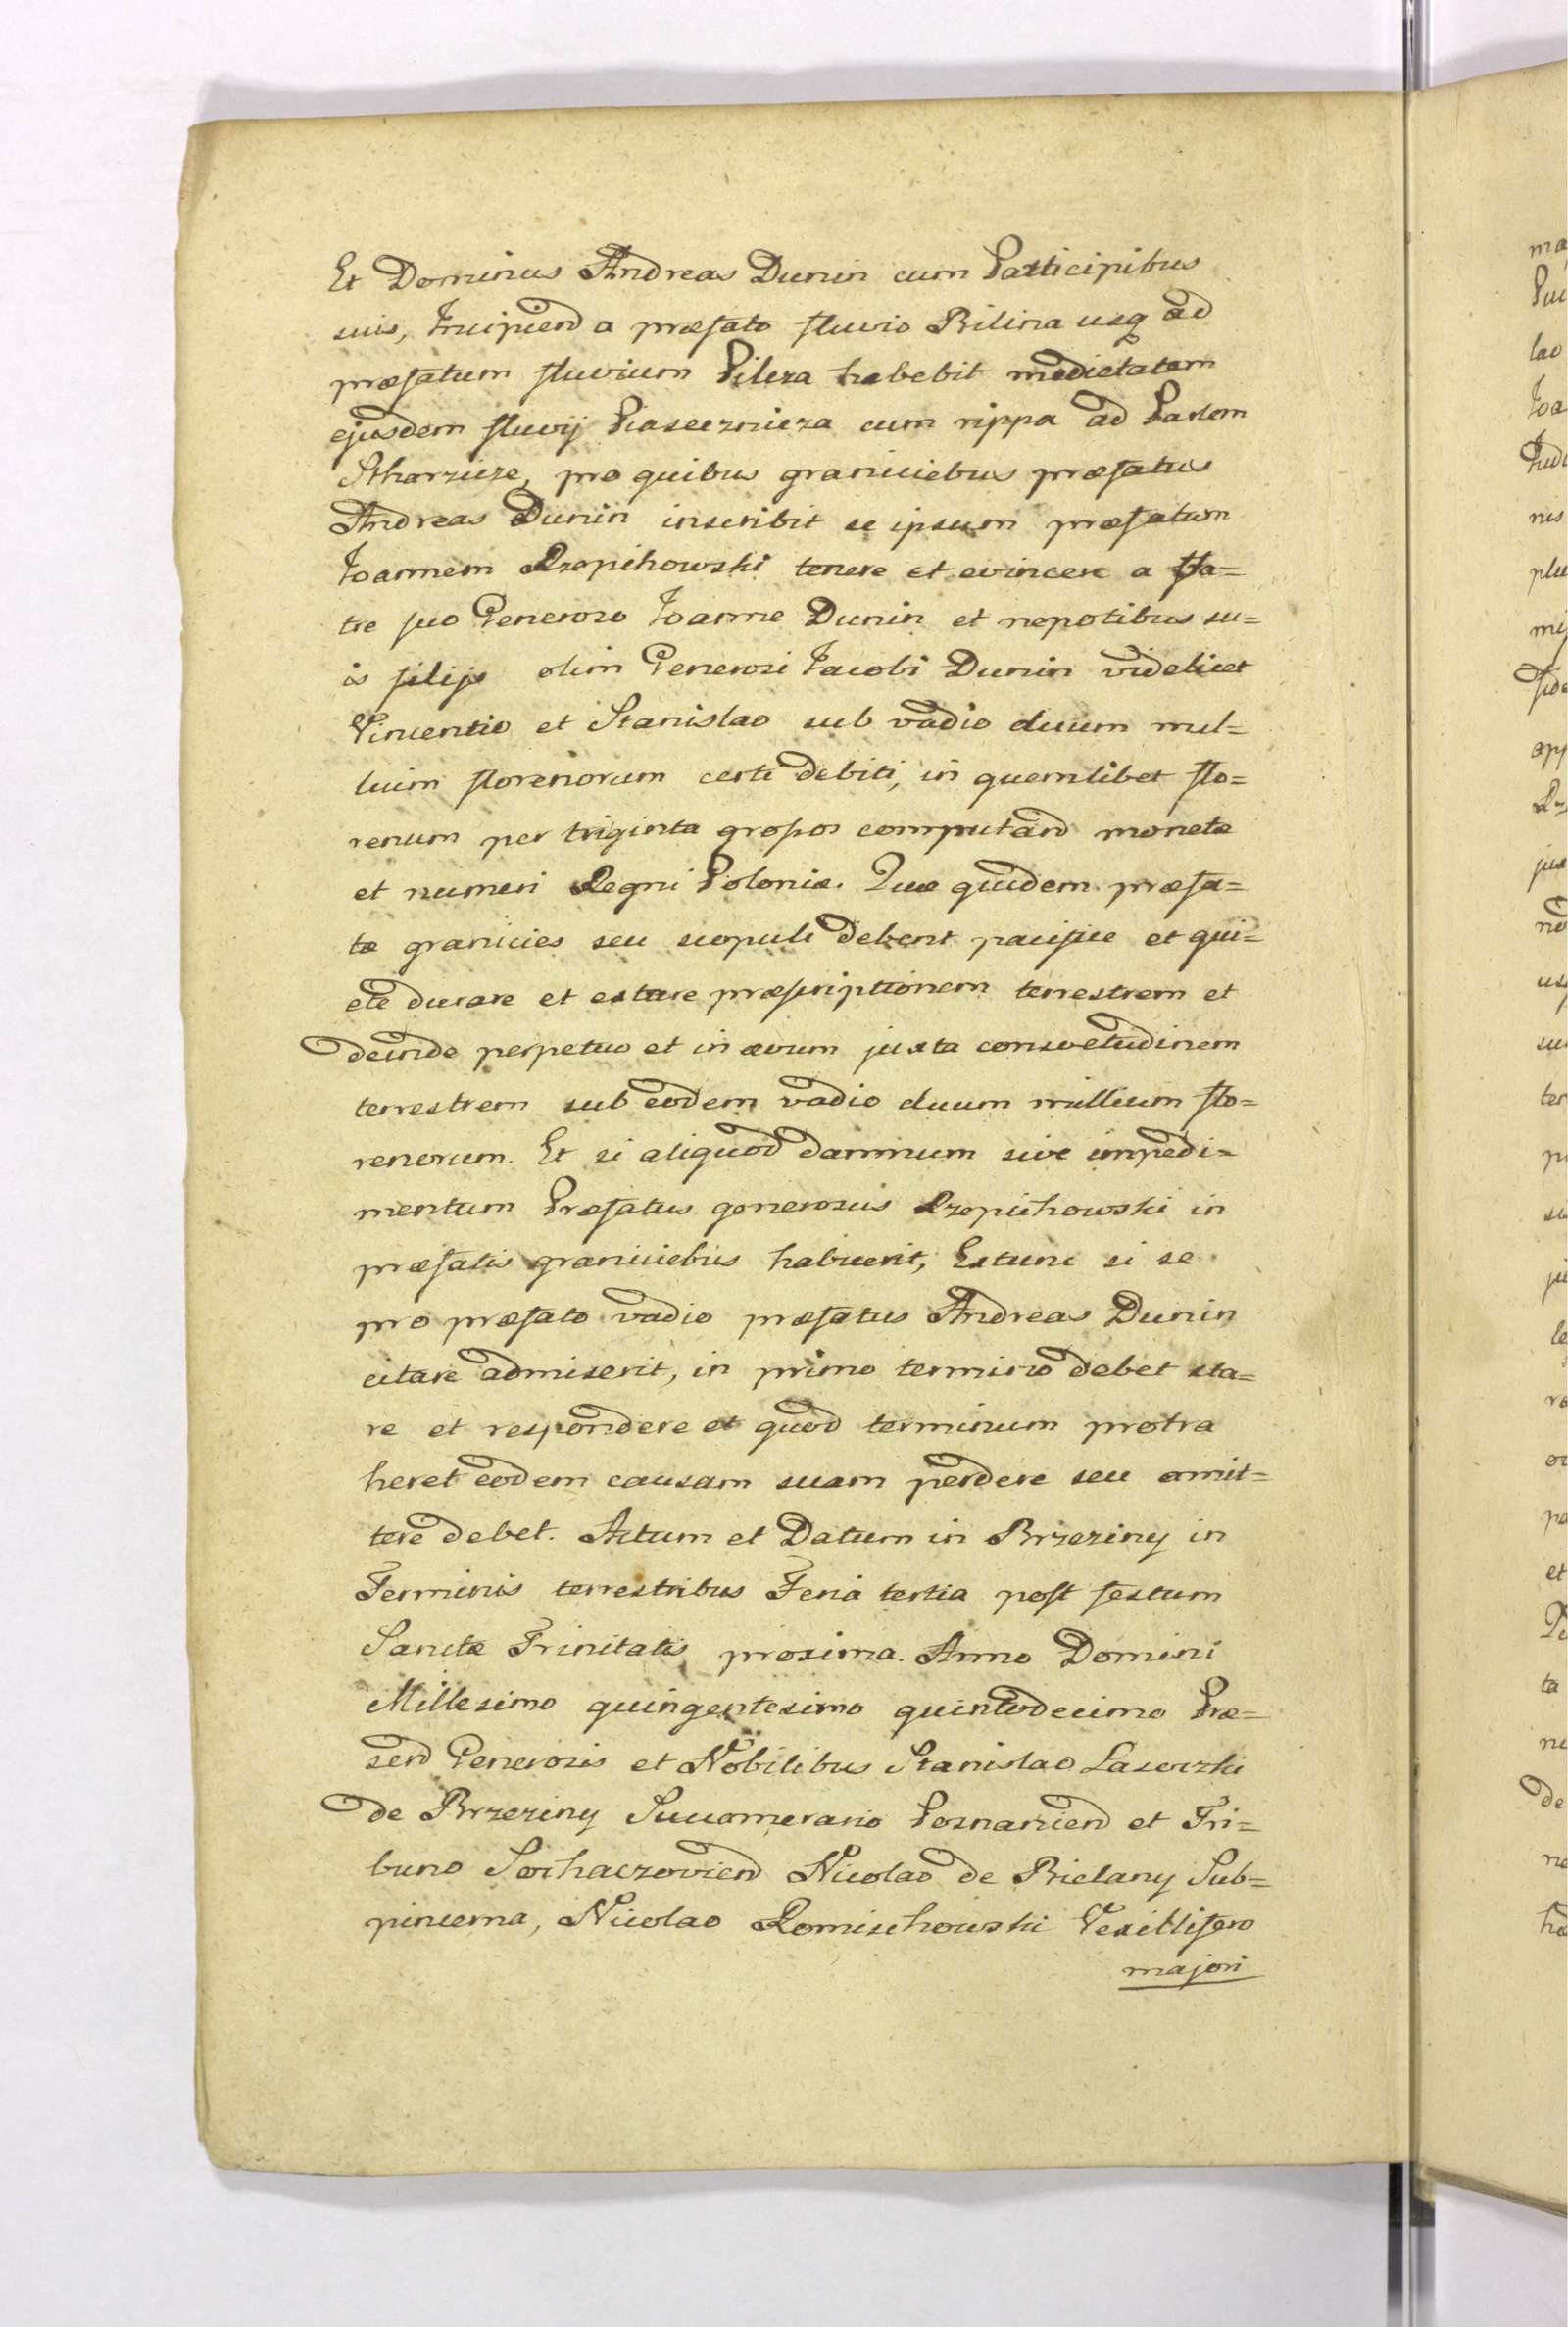 Et Dominus Andreas Dunin cum Participibus
suis, Incipiend a præfato fluvio Bilina usq ad
præfatum fluvium Pilcza habebit medietatem
ejusdem fluvij Piasecznicza cum rippa ad Partem
Stharzicze, pro quibus graniciebus præfatus
Andreas Dunin inscribit se ipsum præfatum
Joannem Rzepichowski tenere et evincere a fra=
tre suo Generoso Joanne Dunin et nepotibus su=
is filijs olim Generosi Jacobi Dunin videlicet
Vincentio et Stanislao sub vadio duum mil=
luim florenorum certi debiti, in quemlibet flo=
renum per triginta grossos computand monetæ
et numeri Regni Poloniæ. Quæ quidem præfa=
tæ granicies seu scopuli debent pacifice et qui=
ete durare et extare præscriptionem terrestrem et
deinde perpetuo et in ævum juxta consvetudinem
terrestrem sub eodem vadio duum millium flo=
renorum. Et si aliquod damnum sive impedi=
mentum Præfatus generosus Rzepichowski in
præfatis graniciebus habuerit, Extunc si se
pro præfato vadio præfatus Andreas Dunin
citare admiserit, in primo termino debet sta=
re et respondere et quod terminum protra
heret eodem causam suam perdere seu amit=
tere debet. Actum et Datum in Brzeziny in
Terminis terrestribus Feria tertia post festum
Sanctæ Trinitatis proxima. Anno Domini
Millesimo quingentesimo quintodecimo Præ=
send Generosis et Nobilibus Stanislao Lasoczki
de Brzeziny Succamerario Posnaniend et Tri=
buno Sochaczoviend Nicolao de Bielany Sub=
pincerna, Nicolao Romischowski Vexillifero
majori